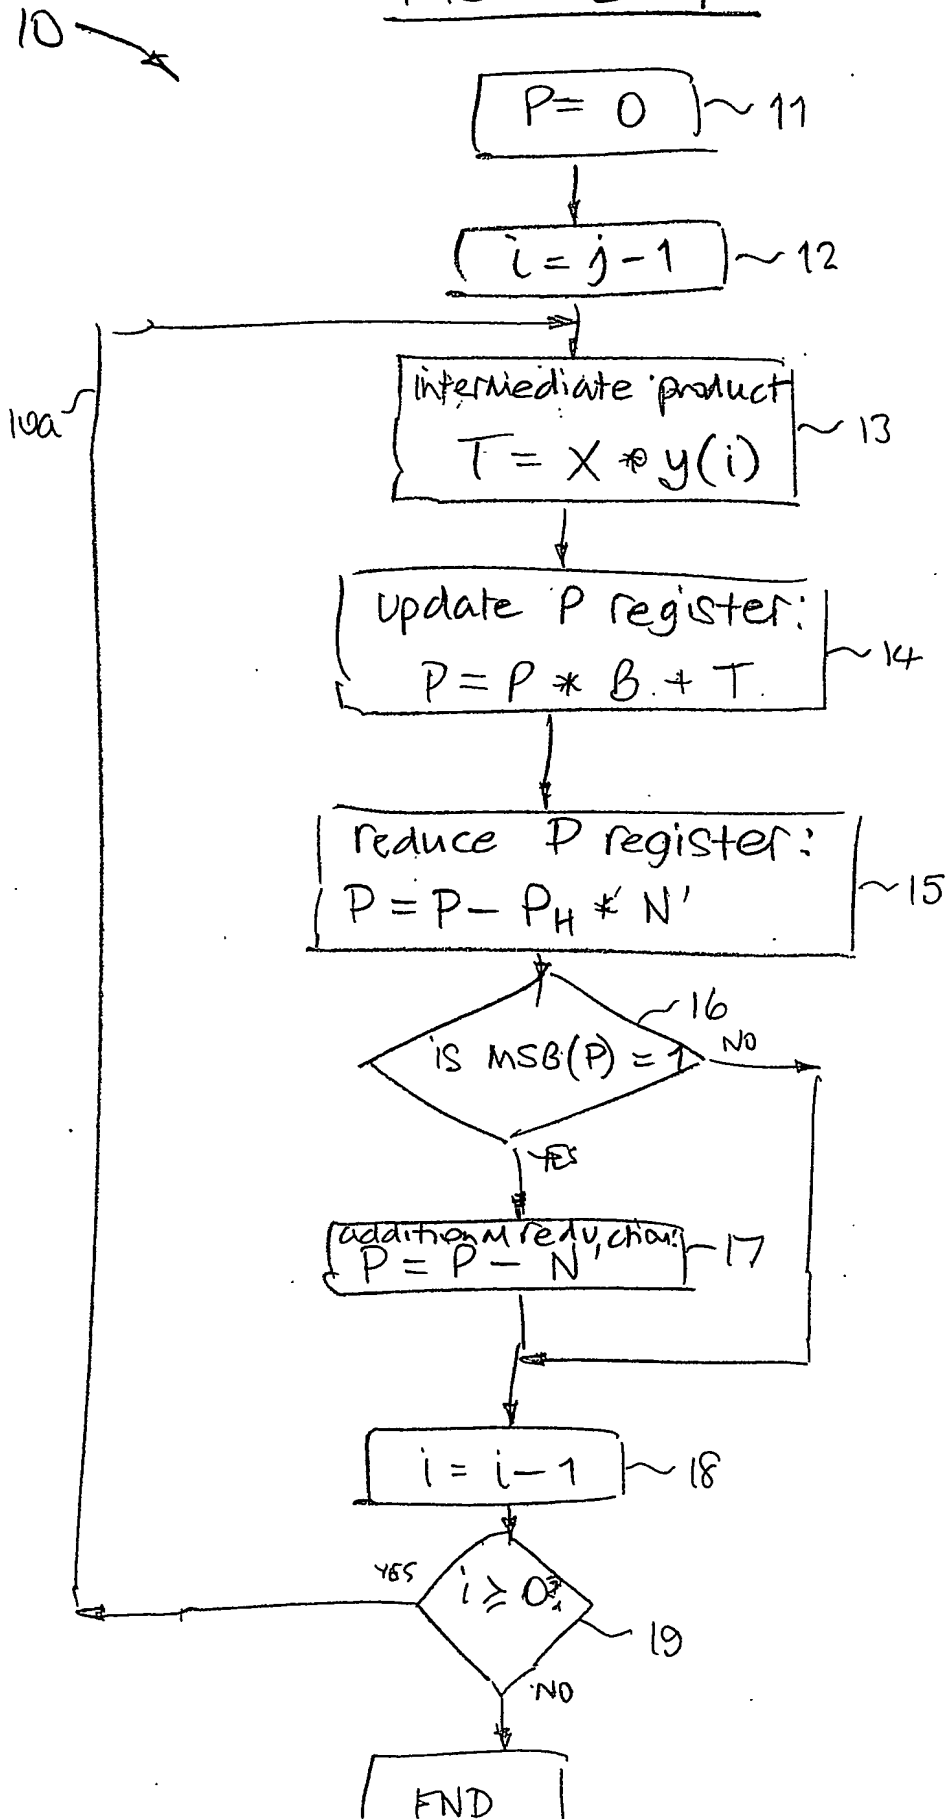 10
P = 0
11
i = j - 1
12
10a
intermediate product
T = X * y(i)
13
update P register:
P = P * B + T
14
reduce P register:
P = P - P_H * N'
15
16
is MSB(P) = 1
NO
YES
additional reduction:
P = P - N'
17
i = i - 1
18
YES
i ≥ 0?
19
NO
END